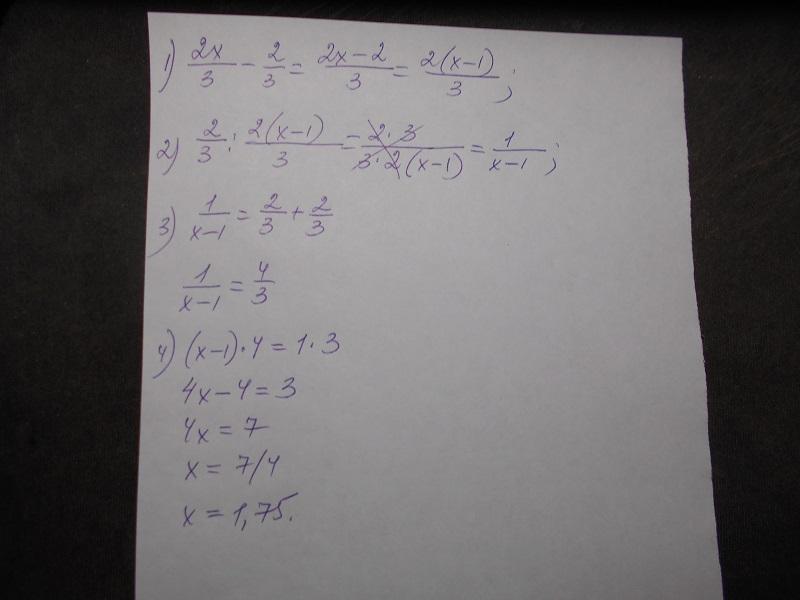 1) 2x/3 - 2/3 = (2x-2)/3 = 2(x-1)/3 ;
2) 2/3 : 2(x-1)/3 = 2·3/3·2(x-1) = 1/(x-1) ;
3) 1/(x-1) = 2/3 + 2/3
1/(x-1) = 4/3
4) (x-1)·4 = 1·3
4x-4=3
4x = 7
x = 7/4
x = 1,75.